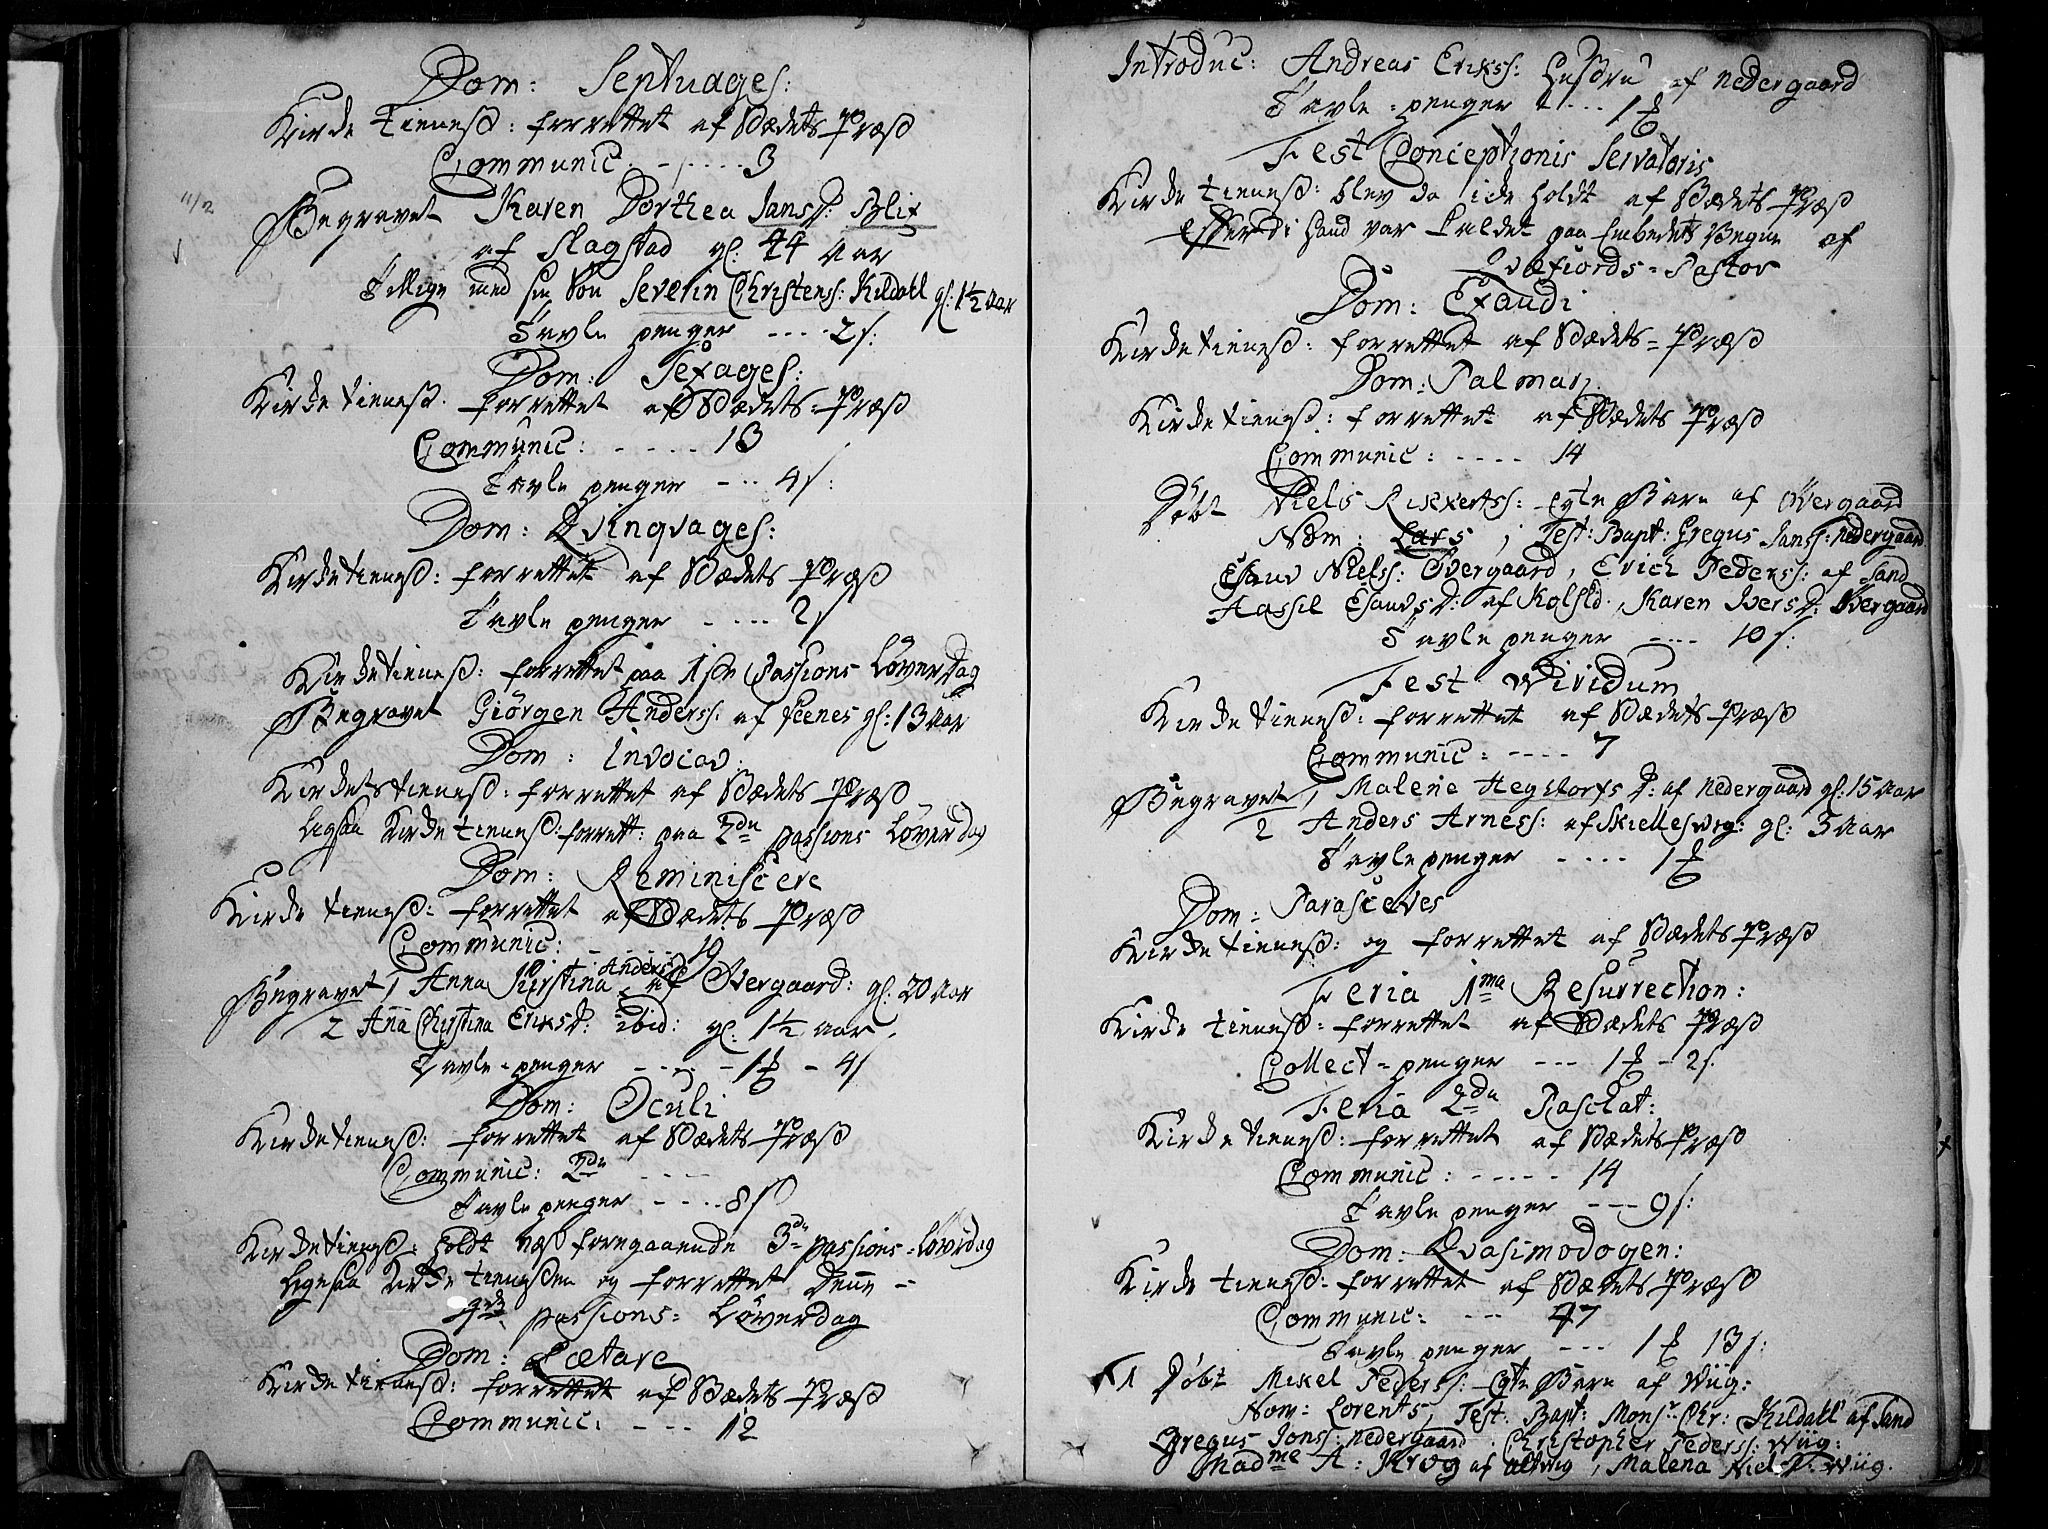 Dom: Septuages:
Kirke tienneß: forrettet af Stædets Præst
Communic: - - - - - 3
11/2
Begravet Karen Dorthea Jansd: Blix
af Slagstad gl: 44 aar
Tillige med sin Søn Severin Christens: Kildahl gl: 1½ aar
Tavle penger - - - - 2 s:
Dom: Sexages:
Kirke tienneß. forrettet af Stædets-Præst
Communic: - - - - - 13
Tavle penger - - - 4 s:
Dom: Qvinqvages:
Kirke tienneß: forrettet af Stædets Præst
Tavle penger - - - - 2 s
Kirke tienneß: forrettet paa 1ste Passions Løverdag
Begravet Giörgen Anderss: af Steenes gl: 13 aar
Dom: Invocav:
Kirkets tienneß: forrettet af Stædets Præst
Ligesaa Kirke tienneß: forrett: paa 2den passions Løverdag
Dom: Reminiscere
Kirke tienneß: forrettet af Stædets Præst
Communic: - - - - - 19
Begravet 1 Anna Kirstina Andersd af Overgaard: gl: 20 aar
2 Ana Christina Eriksd: ibid: gl: 1½ aar.
Tavle-penger - - - - - 1 ℔ - 4 s
Dom: Oculi
Kirke tienneß: forrettet af Stædets Præst
Communic: 2de - - - -
Tavle penger - - - - 8 s
Kirke tienneß: holdt næst foregaaende 3de passions-Løverdag
Ligesaa Kirke tiennesten og forrettet denne -
4de passions= Løverdag
Dom: Lætare
Kirke tienneß: forrettet af Stædets Præst
Communic: - - - 12
Introduc: Andreas Erikss: Hustru af Nedergaard
Tavle-penger - - - - 1 ℔
Fest Conceptionis Servatoris
Kirke tienneß: blev da icke holdt af Stædets Præst
efterdi hand var kaldet paa Embedets Vegne af
Qvæfiords-Pastor
Dom: Exaudi
Kirke tienneß: forrettet af Stædets-Præst
Dom: Palmar:
Kirke tienneß: forrettet af Stædets Præst
Communic: - - - - 14
Døbt Niels Rikkertss: Egte Barn af Overgaard
Nom: Lars, Test: Bapt: Gregus Janss: Nedergaard
Esauv Nielss: Overgaard, Erich Pederss: af Sand
Hassel Esauvsd: af Kolsld, Karen Iversd: Overgaard
Tavle penger - - - - 10 s:
Fest Wiridum
Kirke tienneß: forrettet af Stædets Præst
Communic: - - - - 7
Begravet 1 Malene Hegstorfs D: af Nedergaard gl: 15 aar
2 Anders Arness: af Skiellesvig: gl: 5 aar
Tavle penger - - - - 1 ℔
Dom: Parasceves
Kirke tienneß: og forrettet af Stædets Præst
Feria 1ma Resurrection:
Kirke tienneß: forrettet af Stædets Præst
Collect-penger - - - 1 ℔ - 2 s.
Feria 2da Paschat:
Kirke tienneß: forrettet af Stædets Præst
Communic: - - - - - 14
Tavle penger - - - 9 s:
Dom: Qvasimodogen:
Kirke tienneß: forrettet af Stædets Præst
Communic: - - - 47
Tavle penger - - - 1 ℔ 13 s:
1 Døbt Mikel Pederss: Egte Barn af Wiig:
Nom: Lorents, Test: Bapt: Monsr. Chr: Kildahl af Sand
Gregus Jonss: Nedergaard, Christopher Pederss: Wiig:
Madme A: Krog af altevig, Malena Niels D: Wiig.